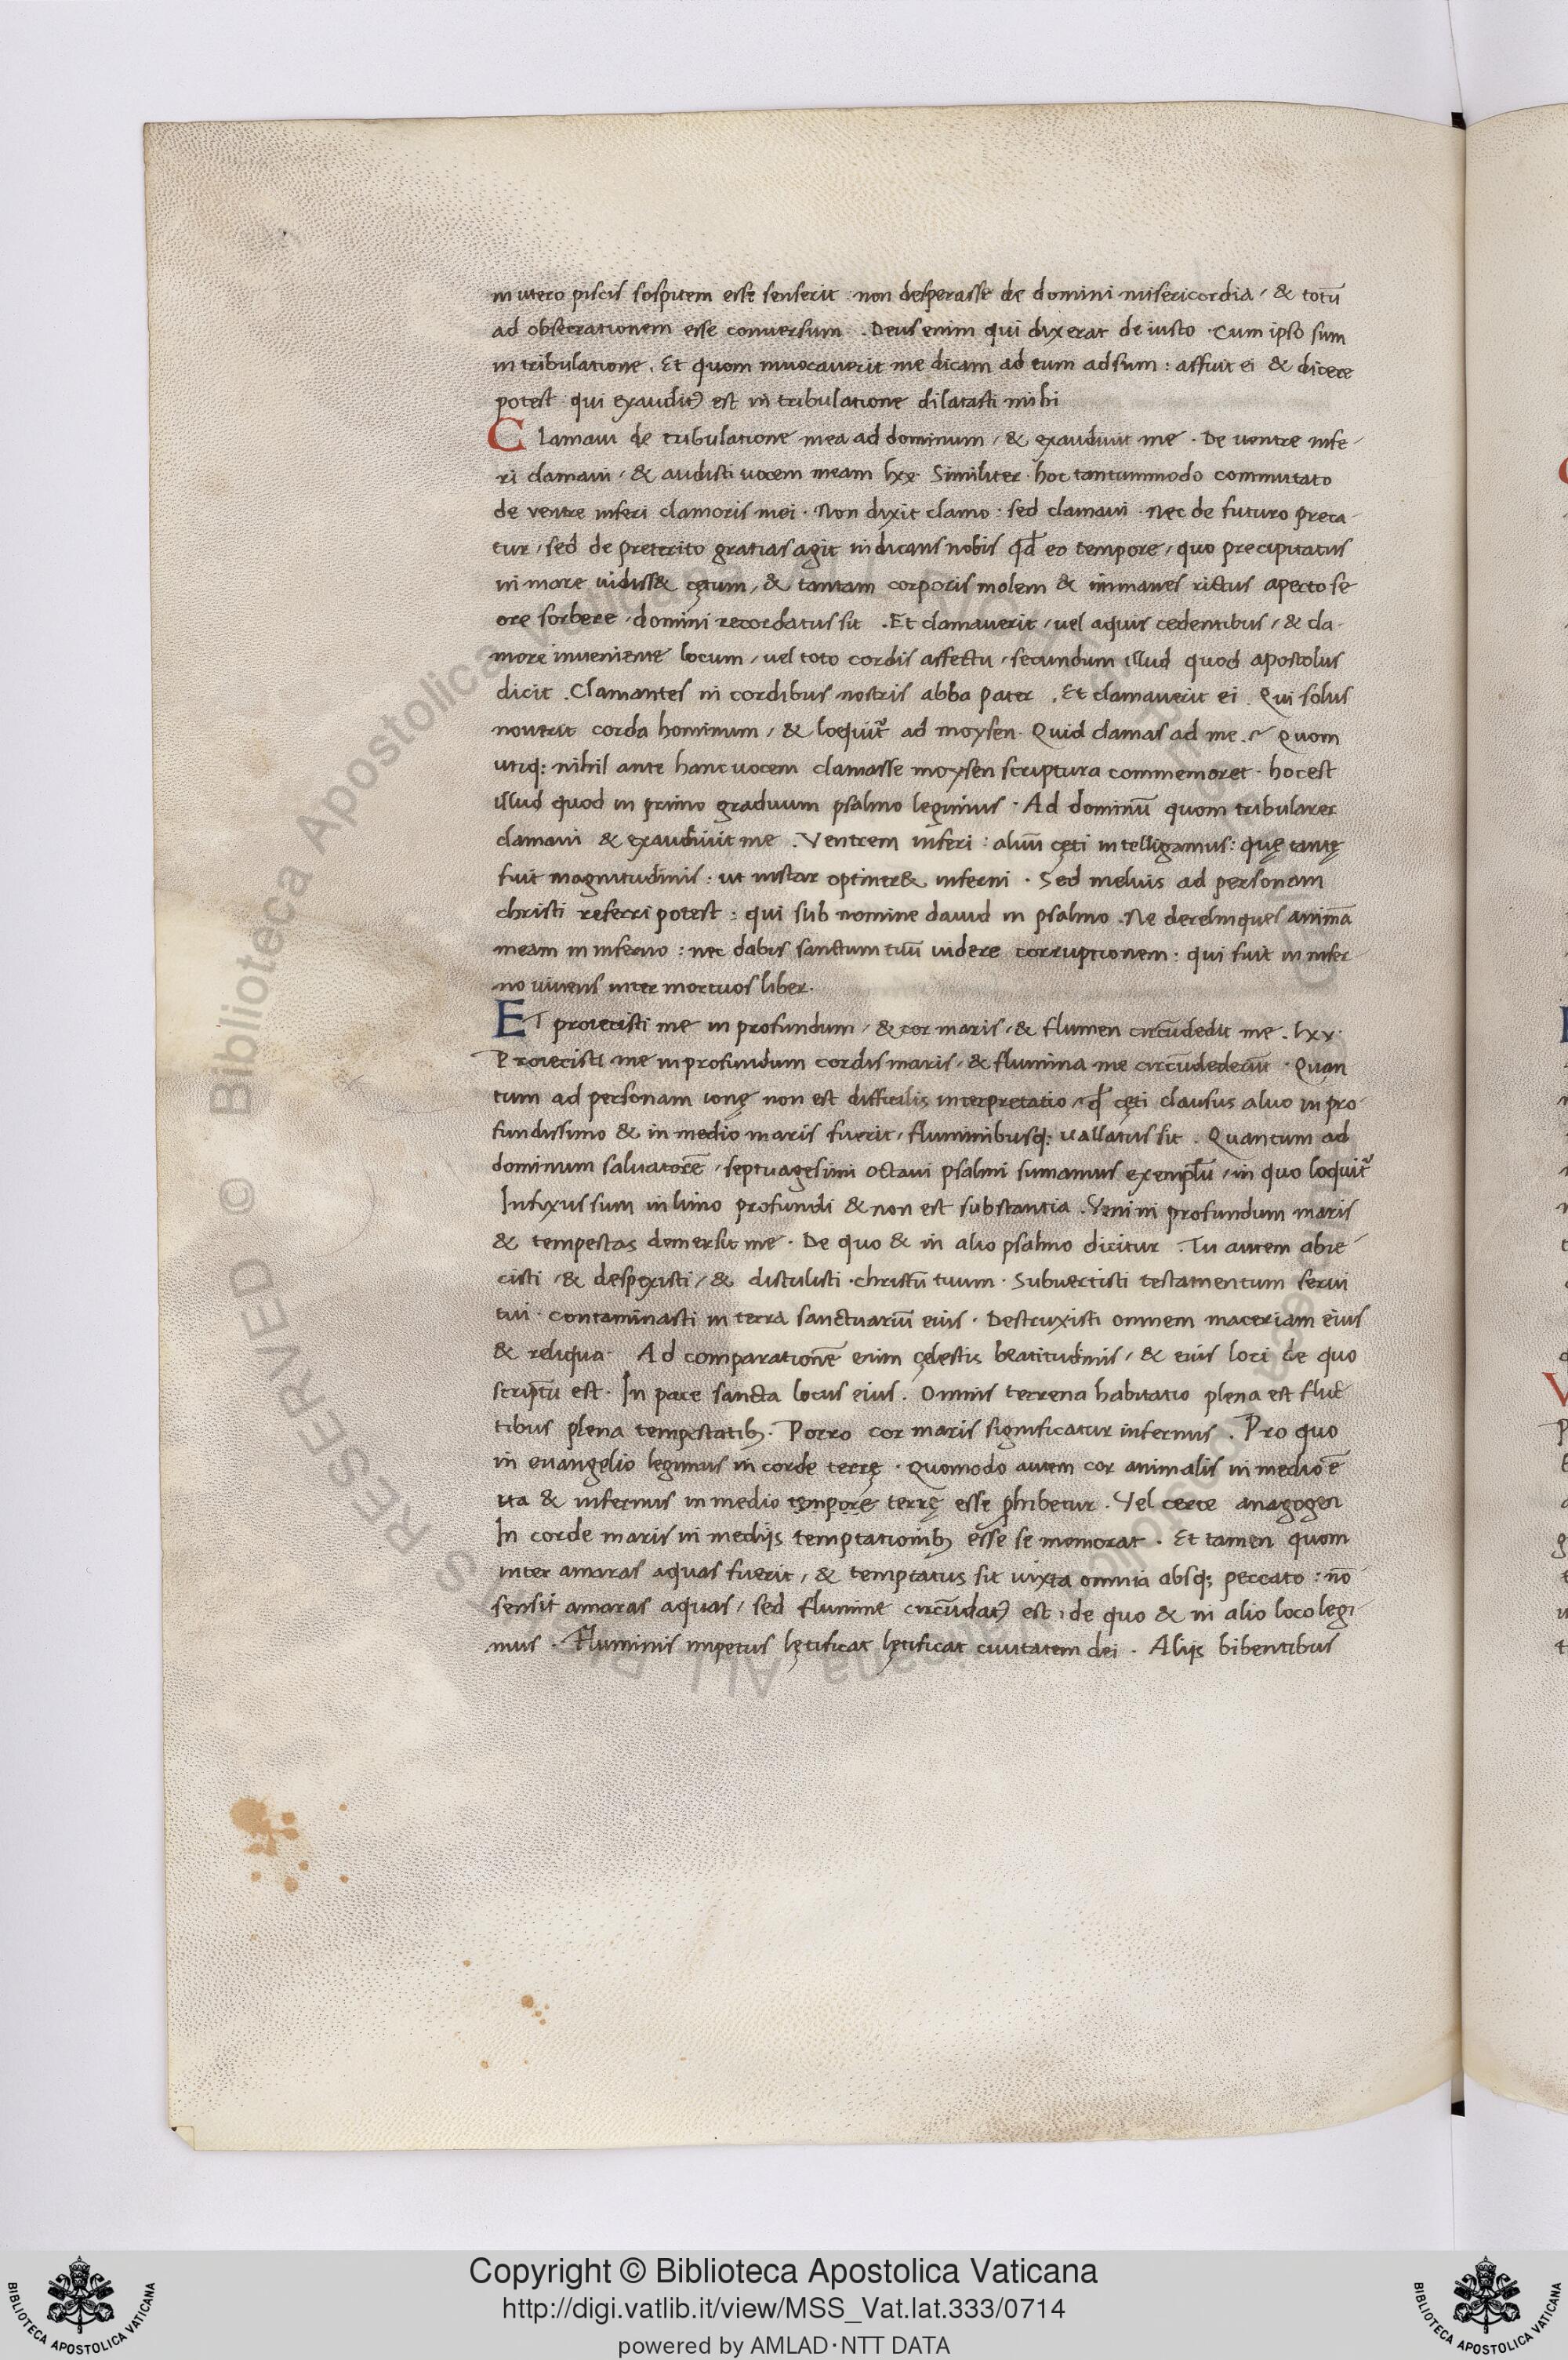 in utero piscis sospitem esse senserit non desperasse de domini misericordia / & totū
ad obsecrationem esse conuersum . Deus enim qui dixerat de iusto . Cum ipso sum
in tribulatione . Et quom inuocauerit me dicam ad eum adsum : affuit ei & dicere
potest qui exauditꝰ est in tribulatione dilatasti mihi
Clamaui de tribulatione mea ad dominum / & exaudiuit me . De uentre infe-
ri clamaui / & audisti uocem meam lxx. Similiter hoc tantummodo commutato
de ventre inferi clamoris mei . Non dixit clamo : sed clamaui . nec de futuro preca-
tur / sed de preterito gratias agit indicans nobis qđ eo tempore / quo precipitatus
in mare uidiss& cętum / & tantam corporis molem & immanes rictus aperto se
ore sorbere / domini recordatus sit . Et clamauerit / uel aquis cedentibus / & cla-
more inueniente locum / uel toto cordis affectu / secundum illud quod apostolus
dicit . Clamantes in cordibus nostris abba pater . Et clamauerit ei . Qui solus
nouerit corda hominum / & loquit᷑ ad moysen . Quid clamas ad me . Quom
utiq; nihil ante hanc uocem clamasse moysen scriptura commemoret . hoc est
illud quod in primo graduum psalmo legimus . Ad dominū quom tribularer
clamaui & exaudiuit me . Ventrem inferi : aluū cęti intelligamus : quę tantę
fuit magnitudinis : ut instar optiner& inferni . Sed melius ad personam
christi referri potest : qui sub nomine dauid in psalmo . Ne derelinques animā
meam in inferno : nec dabis sanctum tuū uidere corruptionem : qui fuit in infer-
no uiuens inter mortuos liber .
ET proiecisti me in profundum / & cor maris / & flumen circūdedit me . lxx.
Proiecisti me in profundum cordis maris / & flumina me circūdederūt . Quan
tum ad personam ionę non est difficilis interpretatio / qđ cęti clausus aluo in pro-
fundissimo & in medio maris fuerit / fluminibusq; uallatus sit . Quantum ad
dominum saluatorē / septuagesimi octaui psalmi sumamus exemplū / in quo loquit᷑
Infixus sum in limo profundi & non est substantia . Veni in profundum maris
& tempestas demersit me . De quo & in alio psalmo dicitur . Tu autem abie-
cisti / & despexisti / & distulisti . christū tuum . Subuertisti testamentum serui
tui . contaminasti in terra sanctuariū eius . Destruxisti omnem maceriam eius
& reliqua . Ad comparationē enim cęlestis beatitudinis / & eius loci de quo
scriptū est . In pace sancta locus eius . Omnis terrena habitatio plena est fluc-
tibus plena tempestatibꝫ . Porro cor maris significatur infernus . Pro quo
in euangelio legimus in corde terrę . Quomodo autem cor animalis in medio ē
ita & infernus in medio tempore terrę esse phibetur . Vel certe anagogen
In corde maris in medijs temptationibꝫ esse se memorat . Et tamen quom
inter amaras aquas fuerit / & temptatus sit iuxta omnia absq; peccato : nō
sensit amaras aquas / sed flumine circūdatꝰ est , de quo & in alio loco legi-
mus . Fluminis impetus lętificat lętificat ciuitatem dei . Alijs bibentibus
© Biblioteca Apostolica Vaticana ALL RIGHTS RESERVED
Copyright © Biblioteca Apostolica Vaticana
http://digi.vatlib.it/view/MSS_Vat.lat.333/0714
powered by AMLAD·NTT DATA
BIBLIOTECA APOSTOLICA VATICANA
BIBLIOTECA APOSTOLICA VATICANA